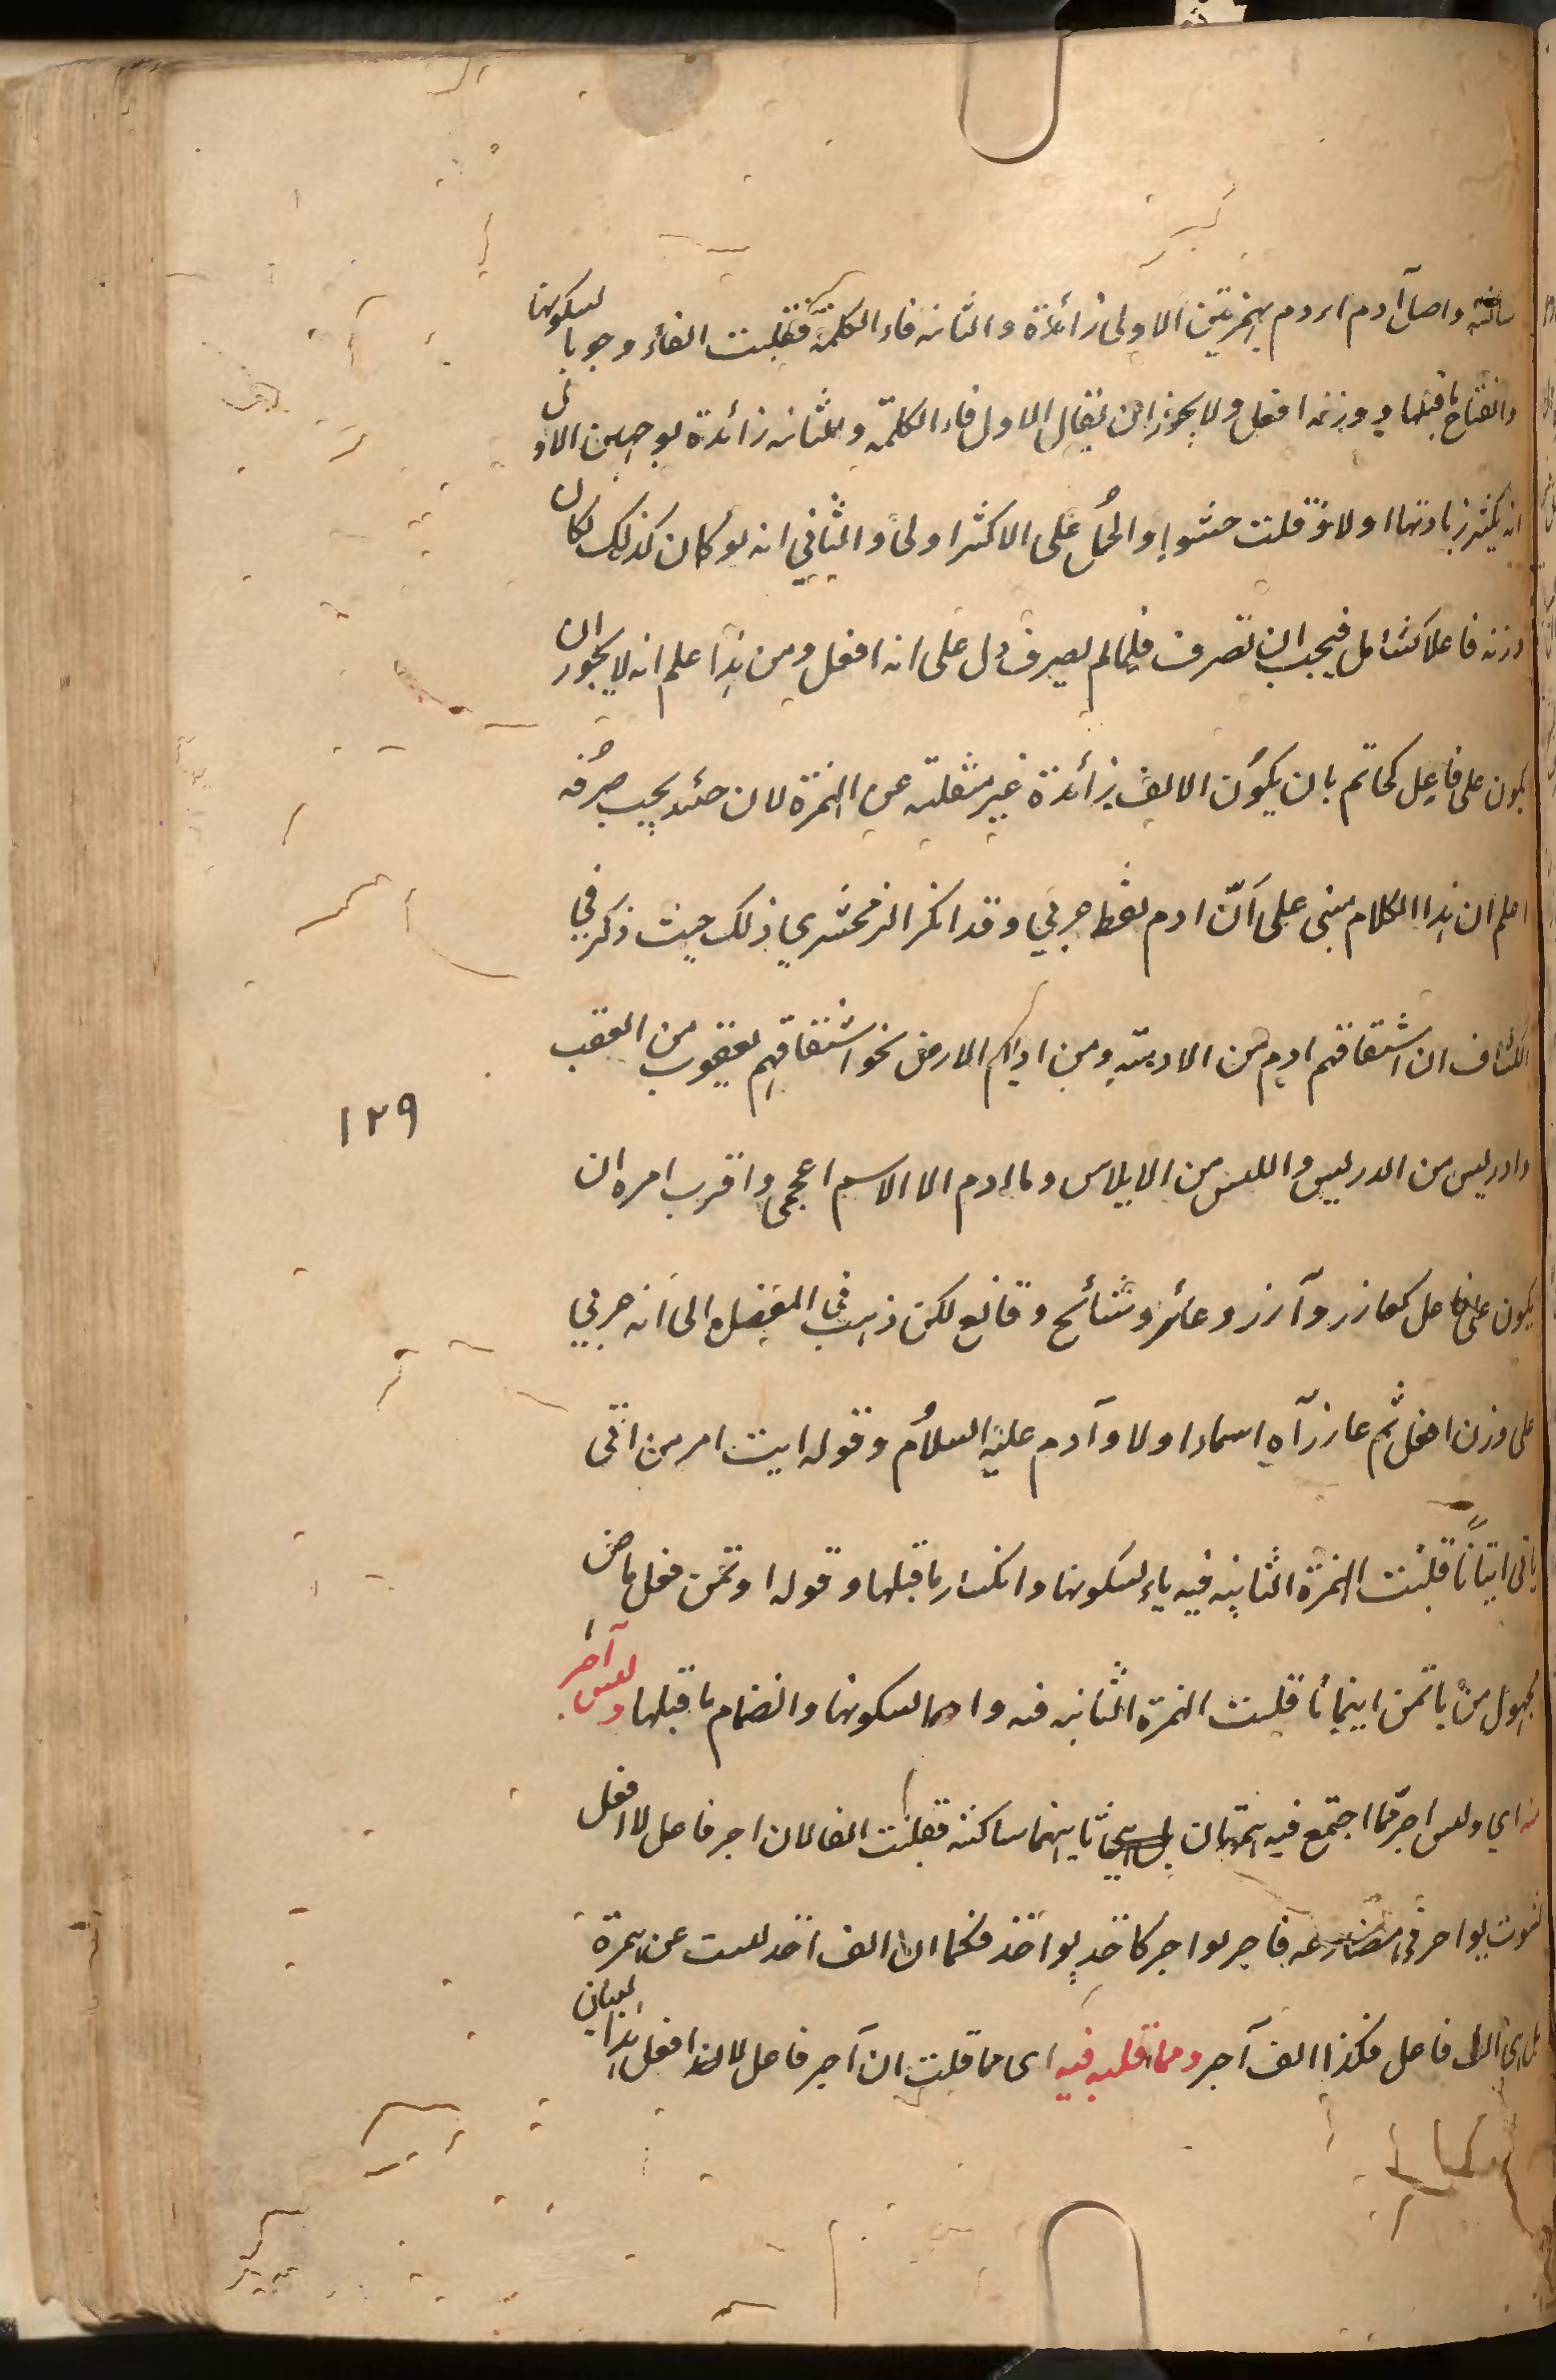 ساكنة واصل آدم اءدم بهمزتين الاولى زائدة والثانية فاء الكلمة فقلبت الفاء وجوبا لسكونها
وانفتاح ما قبلها ووزنه افعل ولا يجوز ان يقال الاول فاء الكلمة والثانية زائدة لوجهين الاولى
انه يكثر زيادتها اولا وقلت حشوا والحمل على الاكثر اولى والثاني انه لو كان كذلك لكان
وزنه فاعلا كشامل فيجب ان تصرف فلما لم يصرف دل على انه افعل ومن هذا علم انه لا يجوز ان
يكون على فاعل كخاتم بان يكون الالف زائدة غير منقلبة عن الهمزة لان حينئذ يجب صرفه
اعلم ان هذا الكلام مبنى على انّ ادم لفظ عربي وقد انكر الزمخشري ذلك حيث ذكر في
الكشاف ان اشتقاقهم ادم من الادمة ومن اديم الارض نحو اشتقاقهم يعقوب من العقب
وادريس من الدرس وابليس من الابلاس وما ادم الا الاسم اعجمى واقرب امره ان
١٢٩
يكون على فاعل كعازر وآزر وعابر وشالخ وفالغ لكن ذهب في المفصل الى انه عربي
على وزن افعل ثم عازر آه اسماء اولاد آدم عليه السلام وقوله ايت امر من اتى
ياتى ايتانا قلبت الهمزة الثانية فيه ياء لسكونها وانكسار ما قبلها وقوله اوتمن فعل ماض
مجهول من ياتمن ايتمانا قلبت الهمزة الثانية فيه واوا لسكونها وانضمام ما قبلها وليس آجر
منه اي وليس اجر مما اجتمع فيه همزتان ثانيهما ساكنة فقلبت الفا لان اجر فاعل لا افعل
لثبوت يواجر في مضارعه فاجر يواجر كآخذ يواخذ فكما ان الف آخذ ليست عن همزة
بل هى الف فاعل فكذا الف آجر ومما قلبه فيه اى مما قلت ان آجر فاعل لا افعل هذا البيان